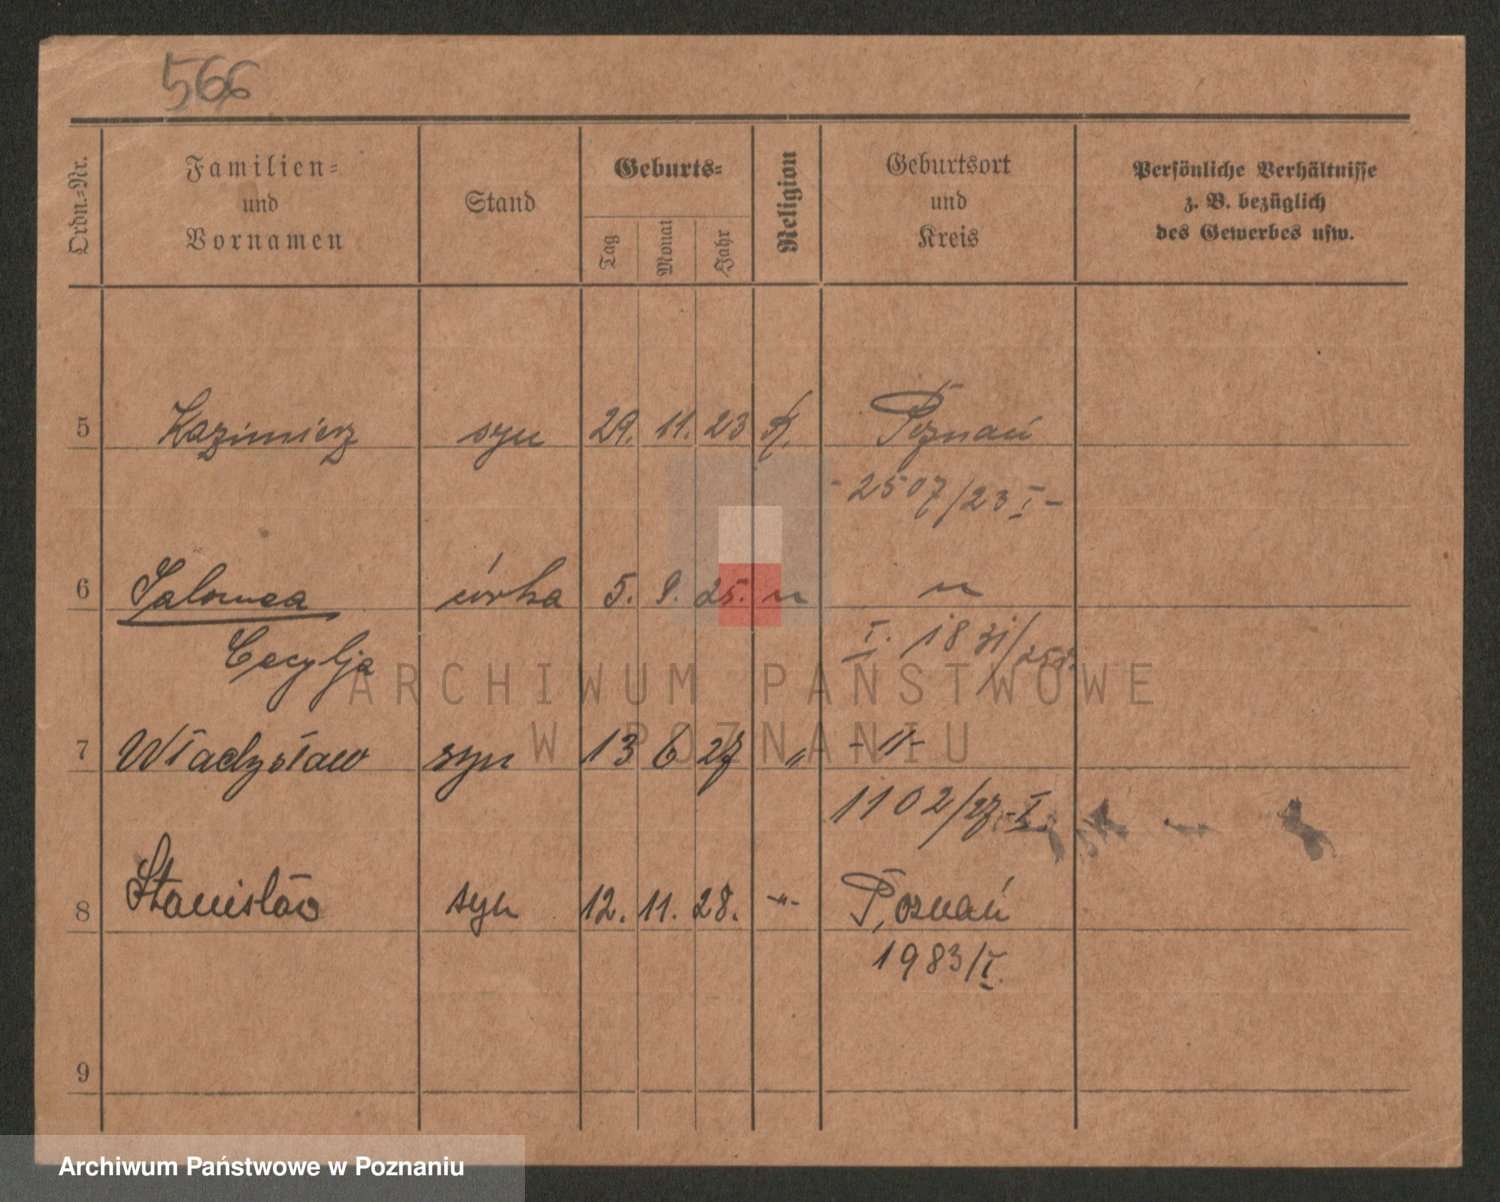 566
Ordn.-Nr.
Familien-
und
Vornamen
Stand
Geburts-
Tag
Monat
Jahr
Religion
Geburtsort
und
Kreis
Persönliche Verhältnisse
z. B. bezüglich
des Gewerbes usw.
5 Kazimierz syn 29. 11. 23 K. Poznań
- 2507/23 I -
6 Salomea córka 5. 9. 25. " "
Cecylja
I. 1831/25.
7 Władysław syn 13 6 27 " -"-
1102/27 - I
8 Stanisław syn 12. 11. 28. -"- Poznań
1983/I
9
ARCHIWUM PAŃSTWOWE
W POZNANIU
Archiwum Państwowe w Poznaniu